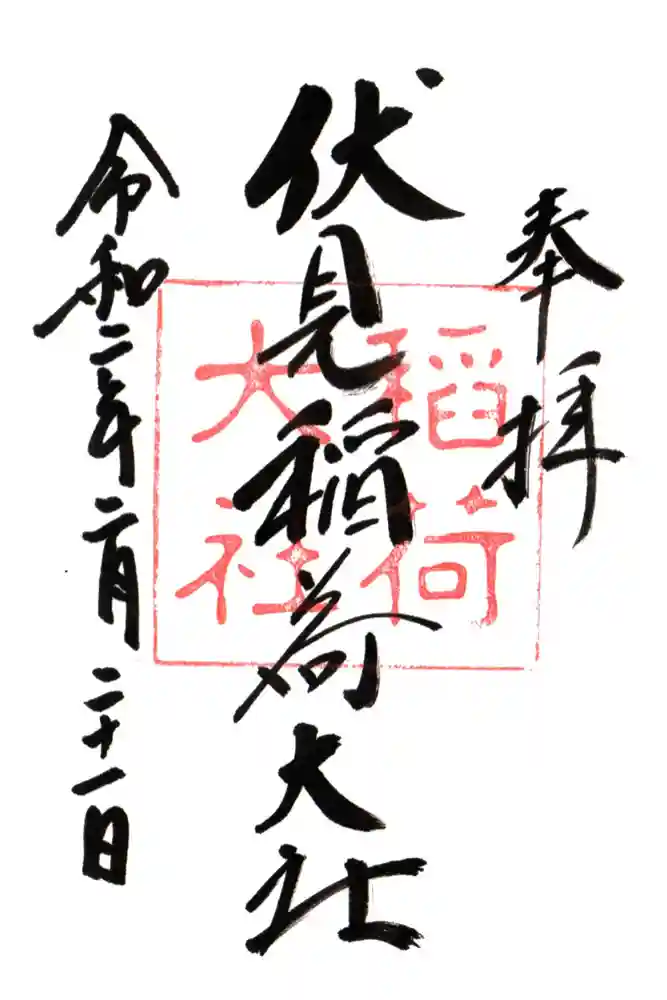 奉拝
伏見稲荷大社
稲荷
大社
令和二年二月二十一日